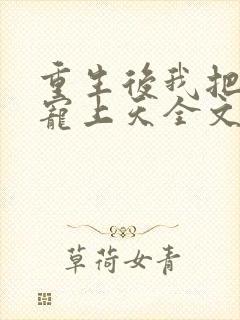 重生後我把
寵上天全文
草荷女青